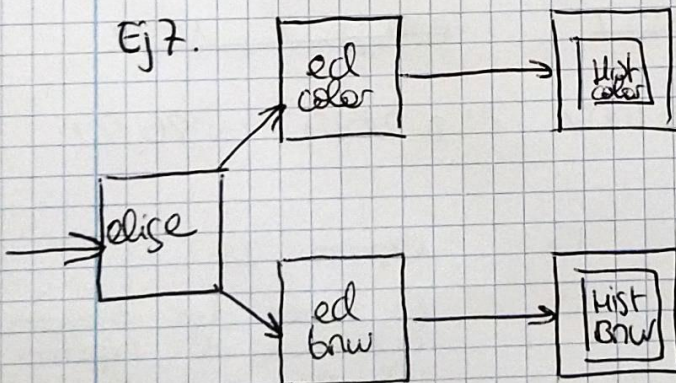 Ej 7.
ed
color
Hist
color
elige
ed
bnw
Hist
Bnw